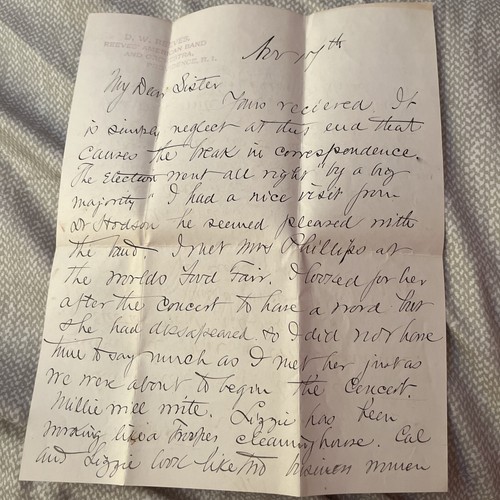 D. W. REEVES,
REEVES' AMERICAN BAND
AND ORCHESTRA,
PROVIDENCE, R. I.
Nov 17th
My Dear Sister
Yours recieved. It
is simply neglect at this end that
causes the break in correspondence.
The Election went all right "by a big
majority" I had a nice visit from
Dr Hodson he seemed pleased with
the band. I met Mrs Phillips at
the Worlds Food Fair. I looked for her
after the concert to have a word but
she had dissapeared so I did not have
time to say much as I met her just as
we were about to begin the Concert.
Millie will write. Lizzie has been
working like a Trooper cleaning house. Cal
and Lizzie look like two business women